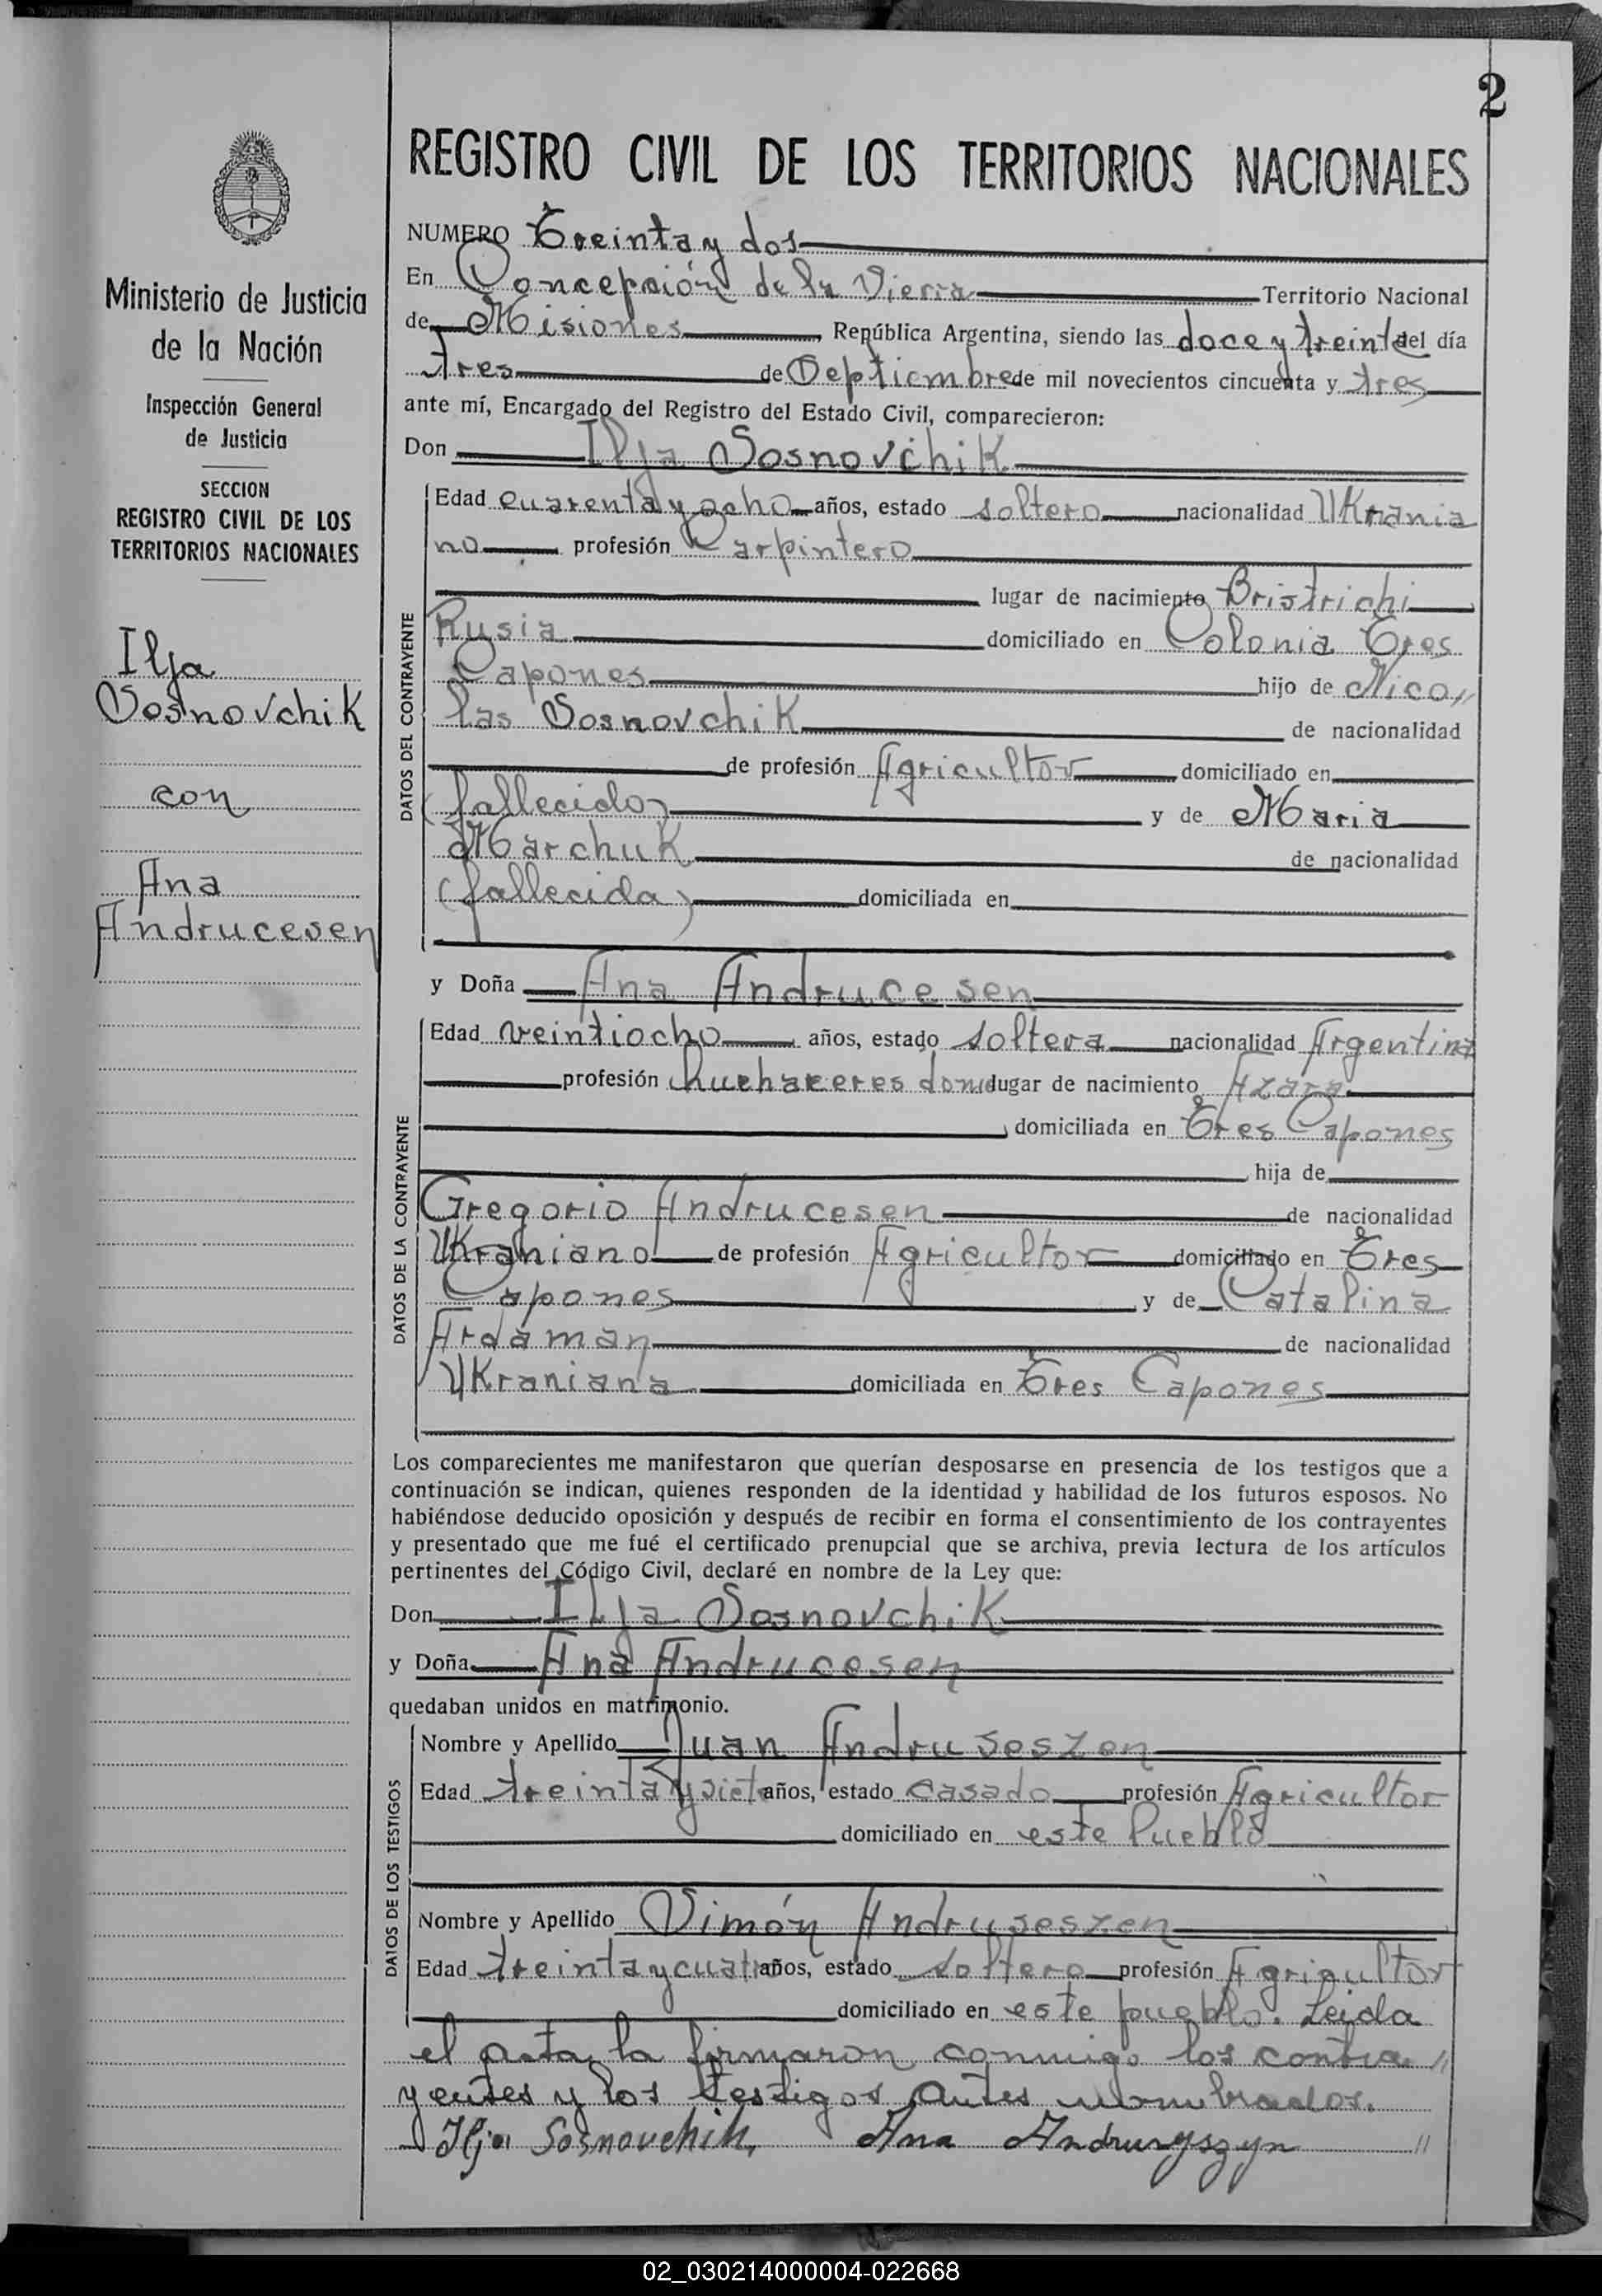 2
REGISTRO CIVIL DE LOS TERRITORIOS NACIONALES
Ministerio de Justicia
de la Nación
Inspección General
de Justicia
SECCION
REGISTRO CIVIL DE LOS
TERRITORIOS NACIONALES
Ilja
Sosnovchik
con
Ana
Andrucesen
NUMERO Treinta y dos
En Concepción de la Sierra Territorio Nacional
de Misiones República Argentina, siendo las doce y treinta del día
tres de Septiembre de mil novecientos cincuenta y tres
ante mí, Encargado del Registro del Estado Civil, comparecieron:
Don Ilja Sosnovchik
DATOS DEL CONTRAYENTE
Edad cuarenta y ocho años, estado soltero nacionalidad Ukrania
no profesión Carpintero
lugar de nacimiento Bristrichi
Rusia domiciliado en Colonia Tres
Capones hijo de Nico,,
las Sosnovchik de nacionalidad
de profesión Agricultor domiciliado en
(fallecido) y de Maria
Marchuk de nacionalidad
(fallecida) domiciliada en
y Doña Ana Andrucesen
DATOS DE LA CONTRAYENTE
Edad veintiocho años, estado soltera nacionalidad Argentina
profesión quehaceres dom lugar de nacimiento Azara
domiciliada en Tres Capones
hija de
Gregorio Andrucesen de nacionalidad
Ukraniano de profesión Agricultor domiciliado en Tres
Capones y de Catalina
Ardaman de nacionalidad
Ukraniana domiciliada en Tres Capones
Los comparecientes me manifestaron que querían desposarse en presencia de los testigos que a
continuación se indican, quienes responden de la identidad y habilidad de los futuros esposos. No
habiéndose deducido oposición y después de recibir en forma el consentimiento de los contrayentes
y presentado que me fué el certificado prenupcial que se archiva, previa lectura de los artículos
pertinentes del Código Civil, declaré en nombre de la Ley que:
Don Ilja Sosnovchik
y Doña Ana Andrucesen
quedaban unidos en matrimonio.
DATOS DE LOS TESTIGOS
Nombre y Apellido Juan Andruseszen
Edad treinta y siete años, estado casado profesión Agricultor
domiciliado en este Pueblo
Nombre y Apellido Simón Andruseszen
Edad treinta y cuatro años, estado soltero profesión Agricultor
domiciliado en este pueblo. Leida
el acta la firmaron conmigo los contra //
yentes y los testigos antes nombrados.
Ilja Sosnovchik, Ana Andruszyn //
02_030214000004-022668